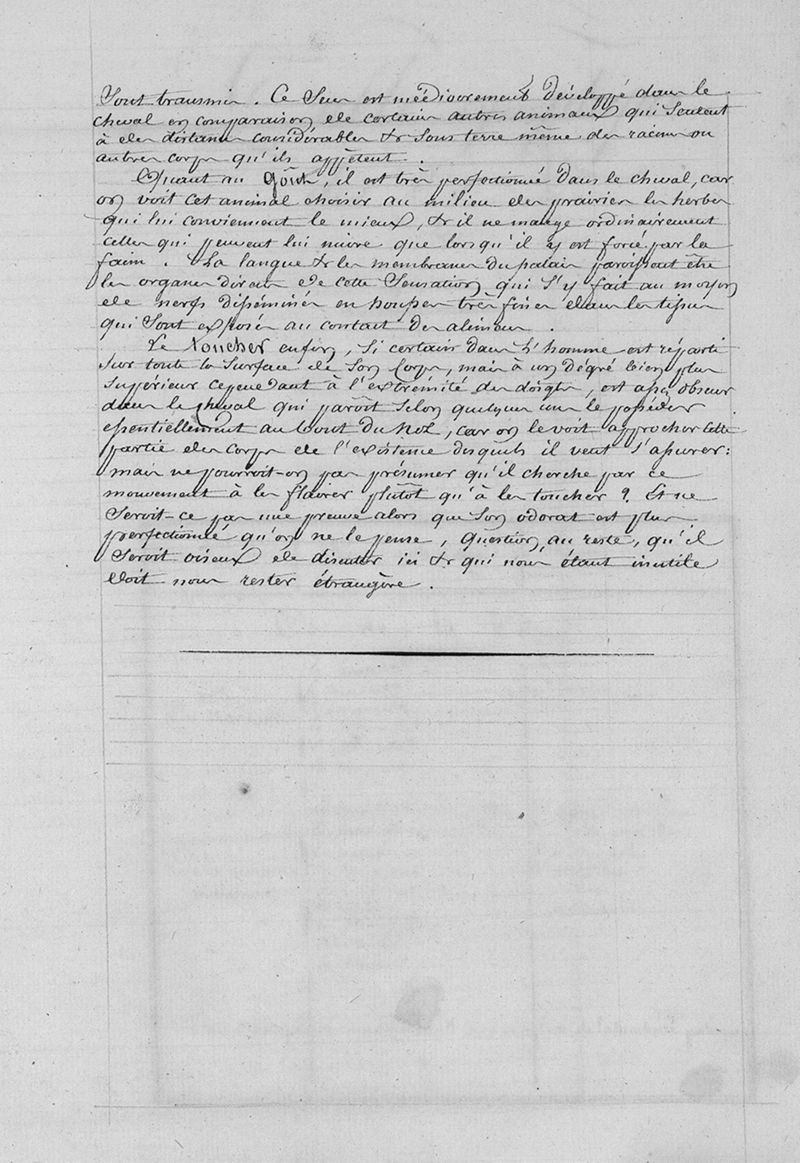 Sont transmis. Ce Sens est médiocrement développé dans le
cheval en comparaison de certains autres animaux qui Sentent
à des distances considérables & Sous terre même des racines ou
autres corps qu'ils appètent.
Quant au Goût, il est très perfectionné dans le cheval, car
on voit cet animal choisir au milieu des prairies les herbes
qui lui conviennent le mieux, & il ne mange ordinairement
celles qui peuvent lui nuire que lorsqu'il y est forcé par la
faim. La langue & les membranes du palais paroissent être
les organes directs de cette Sensation qui S'y fait au moyen
de nerfs disséminés en houpes très fines dans les tissus
qui Sont exposés au contact des alimens.
Le Toucher enfin, Si certain dans l'homme est réparti
Sur toute la Surface de Son Corps, mais à un dégré bien plus
Supérieur cependant à l'extrémité des doigts, est assez obscur
dans le cheval qui paroît Selon quelques uns le posséder
essentiellement au bout du Nez, car on le voit approcher cette
partie des corps de l'existence desquels il veut S'assurer:
mais ne pourroit-on pas présumer qu'il cherche par ce
mouvement à les flairer plutôt qu'à les toucher ? Et ne
Seroit-ce pas une preuve alors que Son odorat est plus
perfectionné qu'on ne le pense, Question, au reste, qu'il
Seroit oiseux de discuter ici & qui nous étant inutile
doit nous rester étrangère.